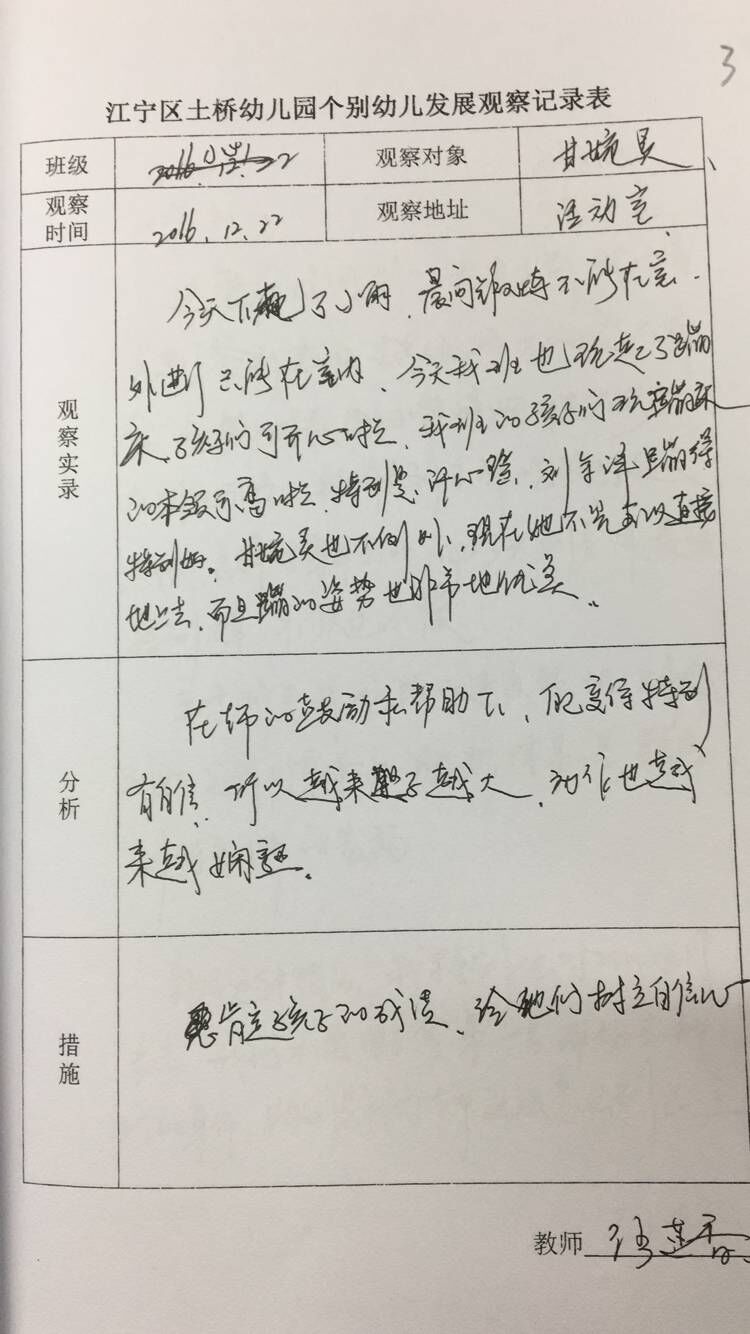 3
江宁区土桥幼儿园个别幼儿发展观察记录表
班级 观察对象 甘婉灵
观察时间 2016.12.22 观察地址 活动室
观察实录
今天下起了小雨，晨间锻炼不能在室
外进行只能在室内，今天我班也玩起了蹦蹦
床，孩子们可开心啦，我班的孩子们玩蹦蹦床
的本领可高啦，特别是许心，刘年泽蹦得
特别好。甘婉灵也不例外，现在她不光可以直接
地上去，而且蹦的姿势也非常地优美。
分析
在老师的鼓励和帮助下，她变得特别
有自信，所以越来胆子越大，动作也越
来越娴熟。
措施
肯定孩子的成绩，给她们树立自信心
教师